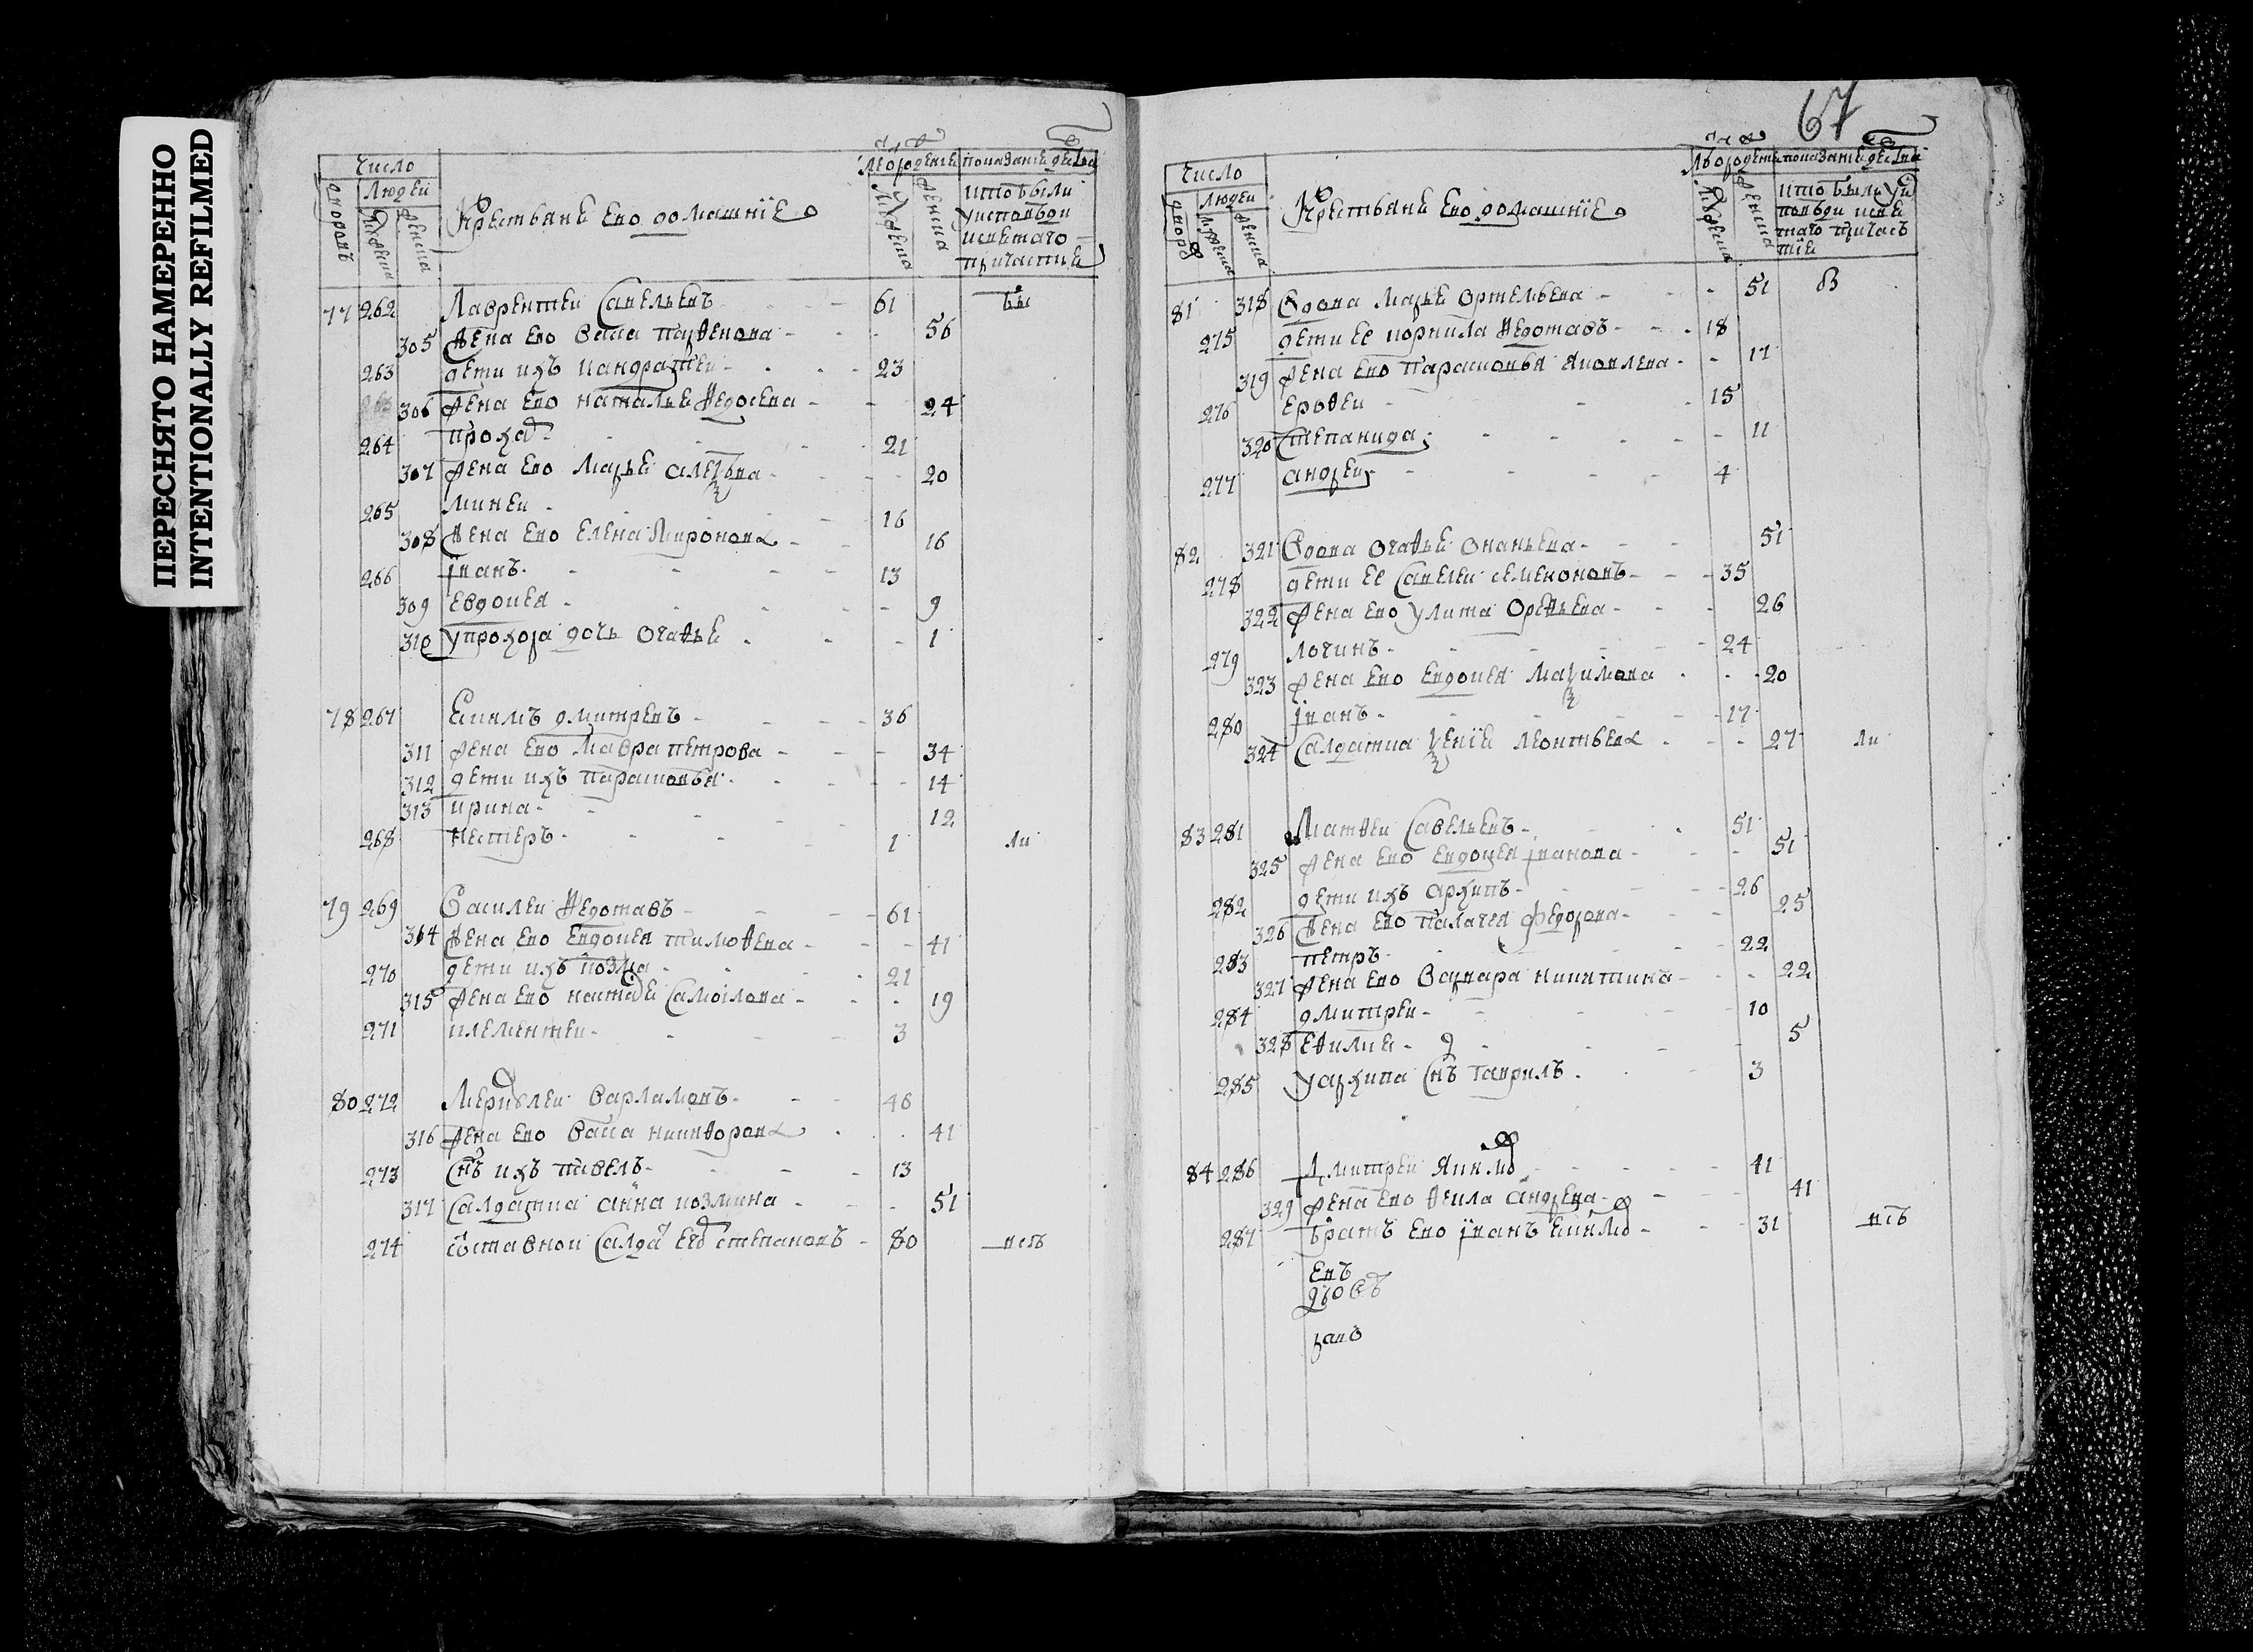 ПЕРЕСНЯТО НАМЕРЕННО
INTENTIONALLY REFILMED
Число
Людей
дворовъ
мужеска
женска
Крестьяне ево домашние
мужеска
женска
кто были
у исповеди
и светаго
причастия
77 262 Лаврентей Савельевъ 61 бы
305 жена ево Васа Парфенова 56
263 дети ихъ Кандратей 23
306 жена ево Наталья Федосева 24
264 Прохо 21
307 жена ево Марья Алеѯева 20
265 Миней 16
308 жена ево Елена Миронова 16
266 Іванъ 13
309 Евдокея 9
310 у Прохора дочь Агафья 1
78 267 Екимъ Дмитревъ 36
311 жена ево Мавра Петрова 34
312 дети ихъ Парасковья 14
313 Ирина 12
268 Нестеръ 1 ли
79 269 Василей Федотовъ 61
314 жена ево Евдокея Тимофева 41
270 дети ихъ Козма 21
315 жена ево Настася Самоілова 19
271 Клементей 3
80 272 Меркулей Варламовъ 46
316 жена ево Васа Никифорова 41
273 Снъ ихъ Павелъ 13
317 Салдатка Анна Козмина 51
274 Степановъ 80
67
Число
Людей
дворо
мужеска
женска
Крестьяне ево домашние
мужеска
женска
кто были у и
споведи и све
таго причас
тия
81 318 Вдова Марья Ортемьева 51 в
275 дети ее Корнила Федотовъ 18
319 жена ево Парасковья Яковлева 17
276 Ерофей 15
320 Степанида 11
277 Андрей 4
82 321 Вдова Огафья Онаньева 51
278 дети ее Савелей Семеновъ 35
322 жена ево Улита Орефьева 26
279 Логинъ 24
323 жена ево Евдокея Маѯимова 20
280 Іванъ 17
324 Салдатка Ѯения Леонтьева 27 ли
83 281 Матфей Савельевъ 51
325 жена ево Евдокея Іванова 51
282 дети ихъ Архипъ 26
326 жена ево Палагея Федорова 25
283 Петръ 22
327 жена ево Варвара Никитина 22
284 Дмитрей 10
328 Ефимия 5
285 у Архипа снъ Гаврилъ 3
84 286 Дмитрей Якимо 41
329 жена ево Фекла Андрева 41
287 братъ ево Іванъ Екимо 31